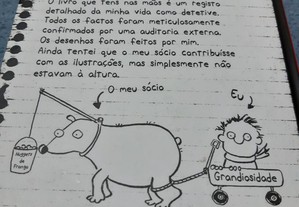 O livro que tens nas mãos é um registo
detalhado da minha vida como detetive.
Todos os factos foram meticulosamente
confirmados por uma auditoria externa.
Os desenhos foram feitos por mim.
Ainda tentei que o meu sócio contribuísse
com as ilustrações, mas simplesmente não
estavam à altura.
O meu sócio
Eu
Nuggets
de
Frango
Grandiosidade